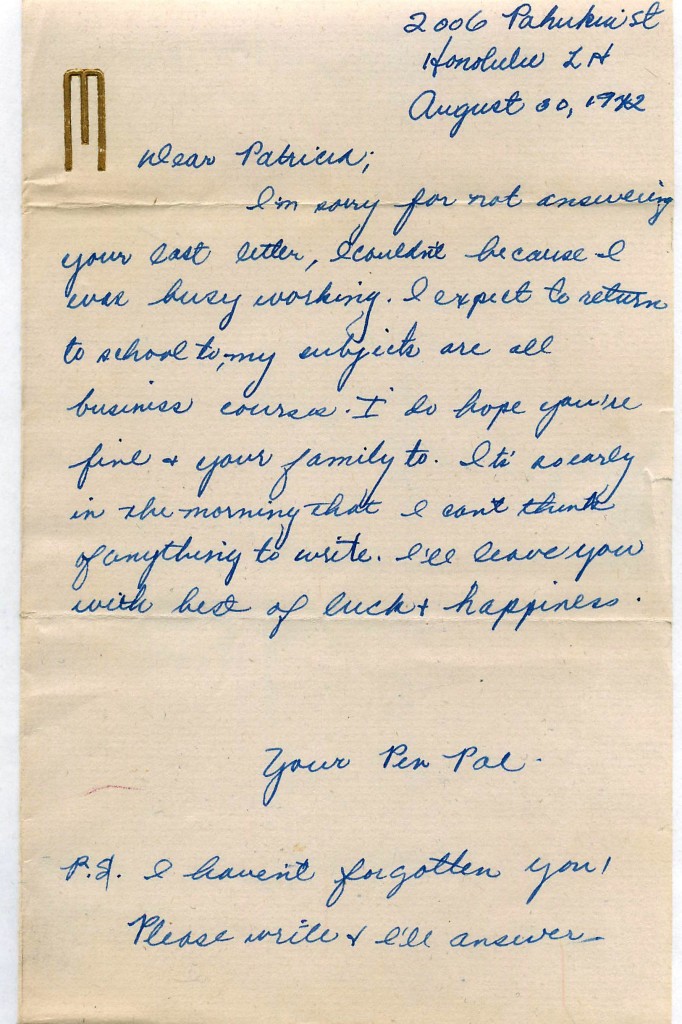 2006 Pahukui St
Honolulu T.H
August 30, 1942
Dear Patricia;
I'm sorry for not answering
your last letter, I couldn't because I
was busy working. I expect to return
to school to, my subjects are all
business courses. I do hope you're
fine & your family to. Its so early
in the morning that I can't think
of anything to write. I'll leave you
with best of luck & happiness.
Your Pen Pal.
P.S. I haven't forgotten you!
Please write & I'll answer